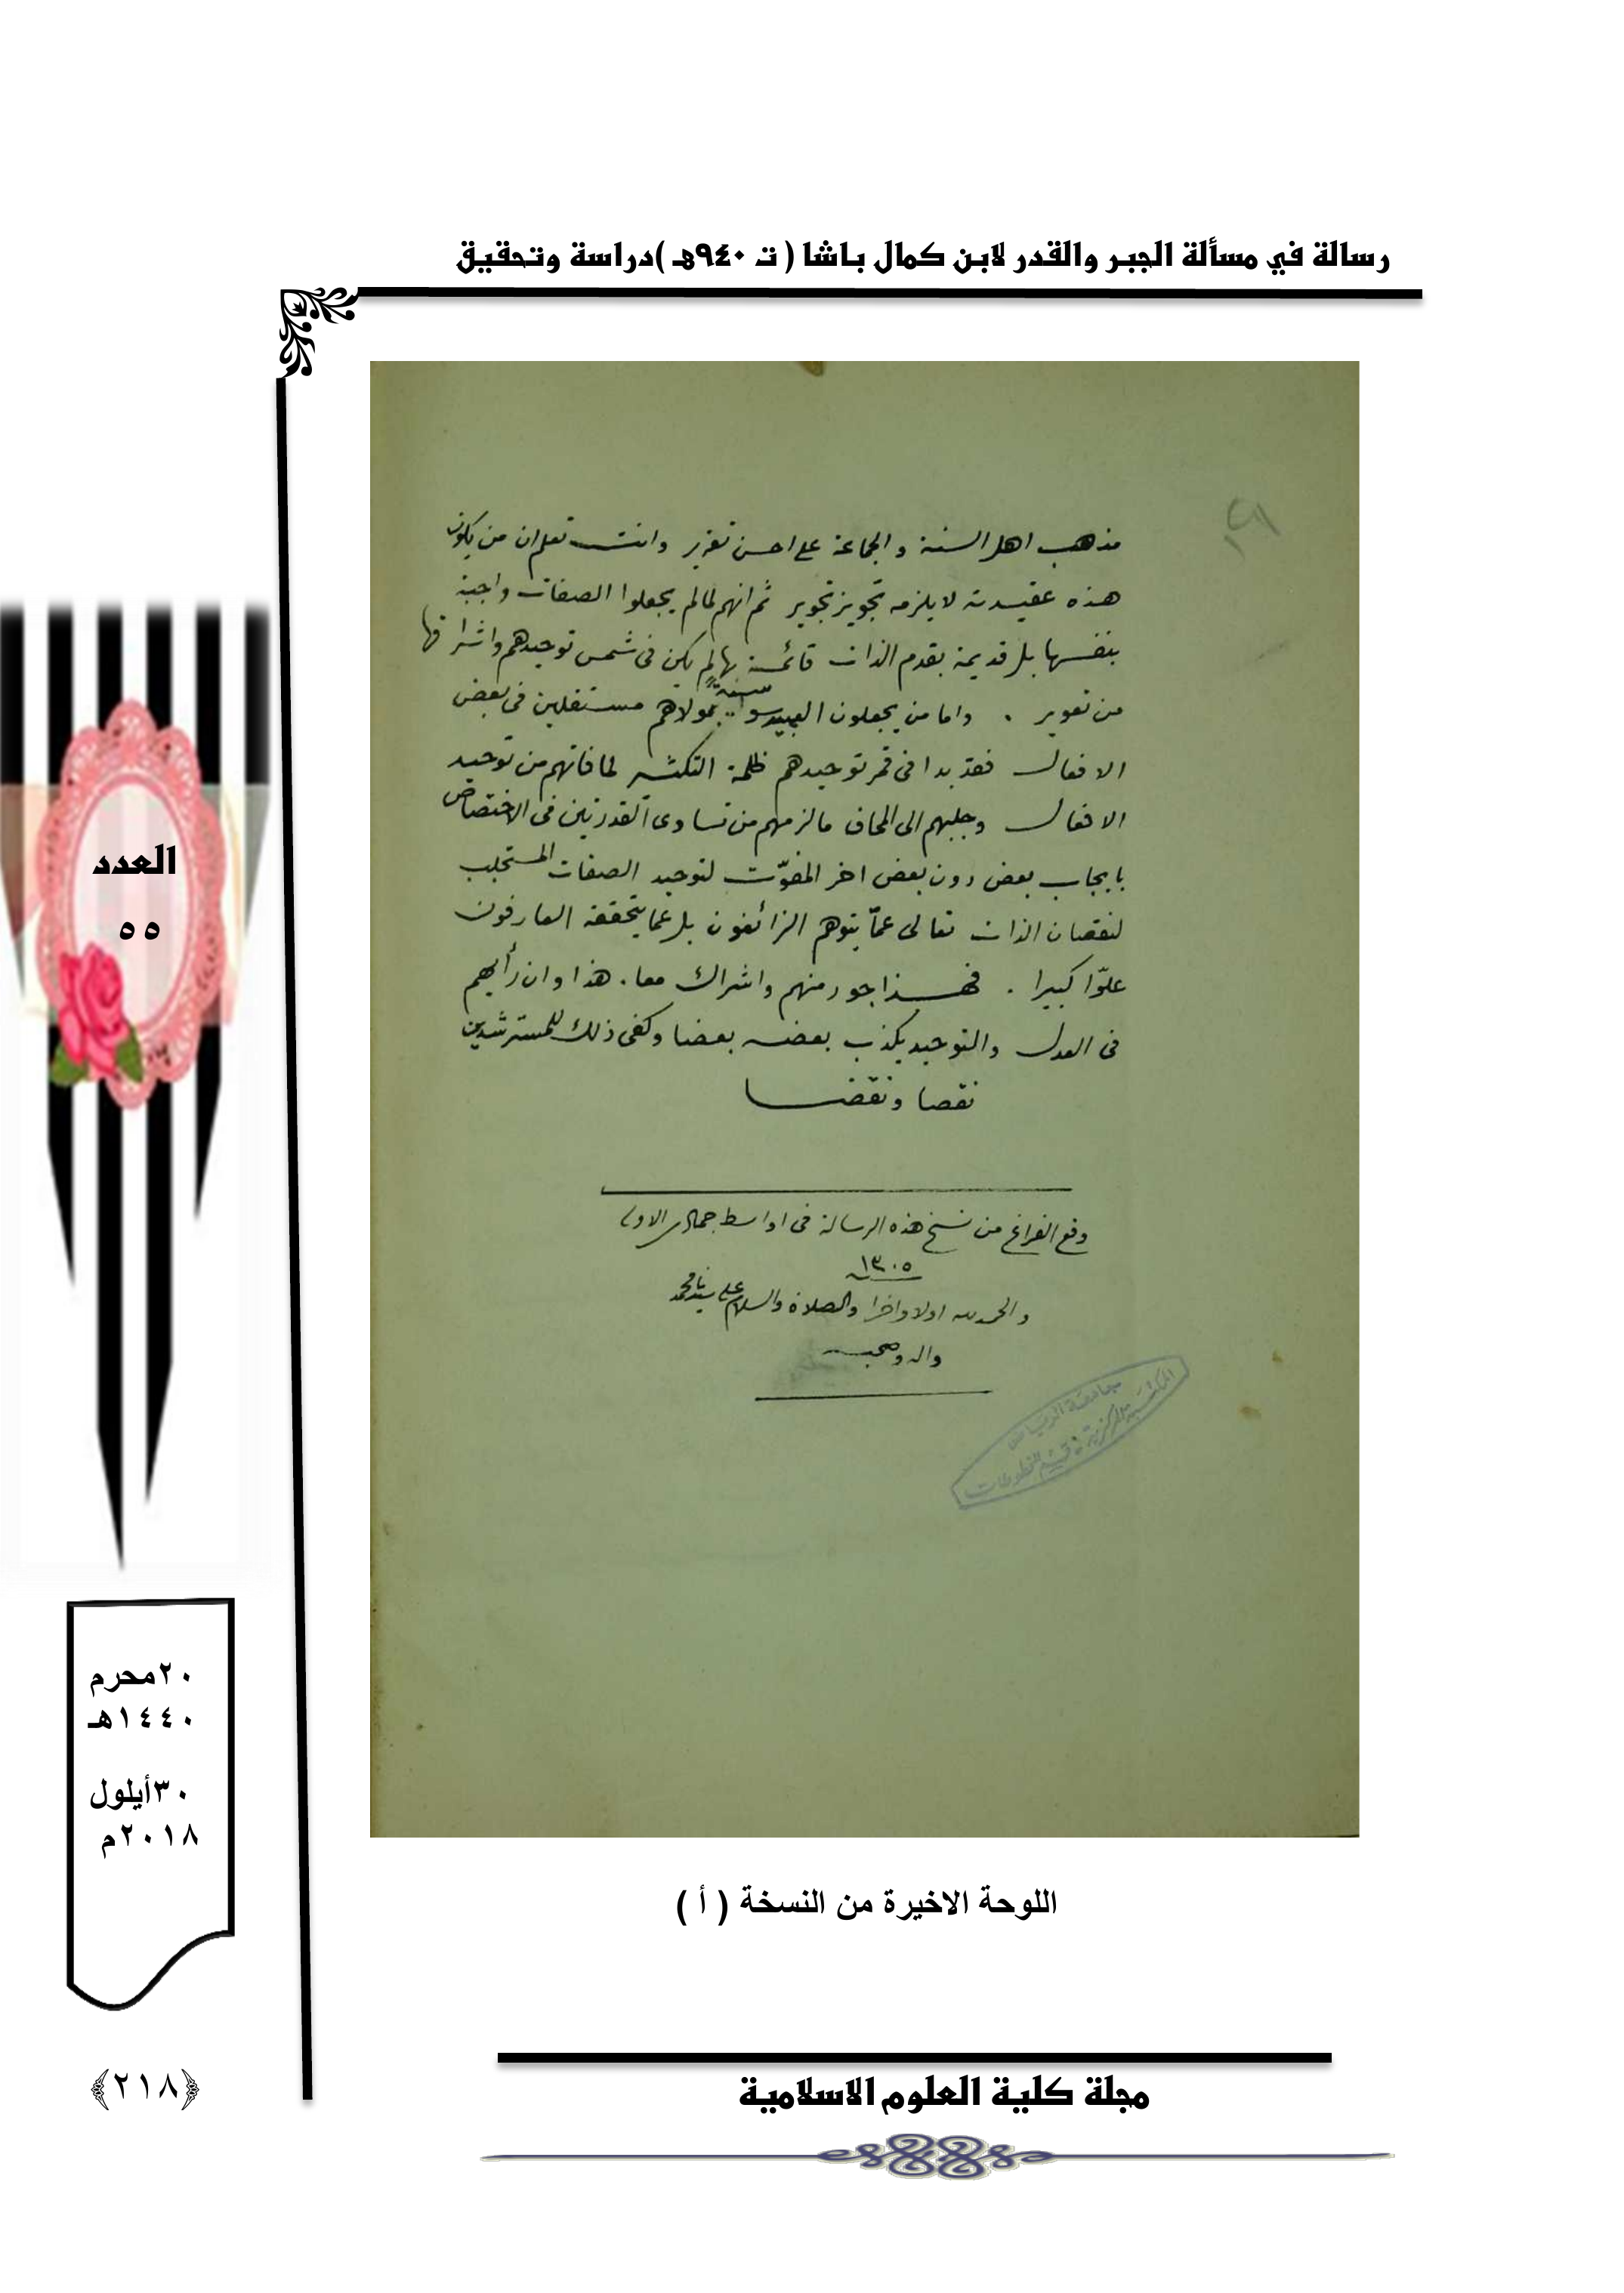 رسالة في مسألة الجبر والقدر لابن كمال باشا ( ت ٩٤٠هـ )دراسة وتحقيق
مذهب اهل السنة والجماعة على احسن تقرير وانت تعلم ان من يكون
هذه عقيدته لا يلزمه تجويز تجوير ثم انهم لما لم يجعلوا الصفات واجبة
بنفسها بل قديمة بقدم الذات قائمة بها لم يكن فى شمس توحيدهم واشراقها
من تعوير . واما من يجعلون العبيد بمولاهم مستقلين فى بعض
الافعال فقد بدا فى قمر توحيدهم ظلمة التكثير لما فاتهم من توحيد
الافعال وجلبهم الى المحاق ما لزمهم من تساوى القدرتين فى الاختصاص
بايجاب بعض دون بعض اخر المفوّت لتوحيد الصفات المستجلب
لنقصان الذات تعالى عمّا يتوهم الزائغون بل عما يتحققه العارفون
علوّا كبيرا . فهذا جور منهم واشراك معا . هذا وان رأيهم
فى العدل والتوحيد يكذب بعضه بعضا وكفى ذلك للمسترشدين
نقصا ونقضا
وقع الفراغ من نسخ هذه الرسالة فى اواسط جمادى الاولى
١٣٠٥
والحمد لله اولا واخرا والصلاة والسلام على سيدنا محمد
واله وصحبه
جامعة الرياض
المكتبة المركزية قسم المخطوطات
العدد
٥٥
٢٠محرم
١٤٤٠هـ
٣٠أيلول
٢٠١٨م
اللوحة الاخيرة من النسخة ( أ )
﴿٢١٨﴾
مجلة كلية العلوم الاسلامية